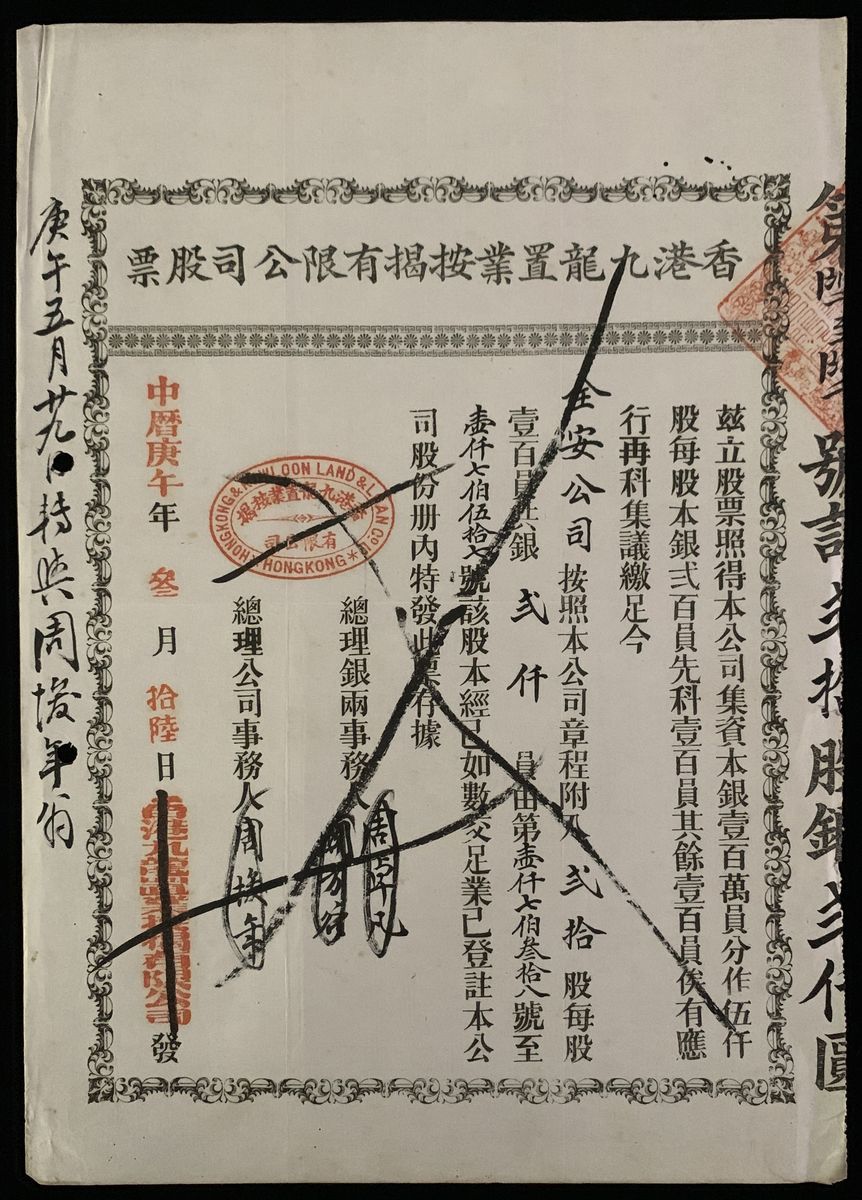 香港九龍置業按揭有限公司股票
號計弍拾股銀弍仟圓
茲立股票照得本公司集資本銀壹百萬員分作伍仟
股每股本銀弍百員先科壹百員其餘壹百員俟有應
行再科集議繳足今
全安公司 按照本公司章程附入弍拾股每股
壹百員共銀弍仟員由第壹仟七伯叁拾八號至
壹仟七伯伍拾七號該股本經已如數交足業已登註本公
司股份册內特發此票存據
總理銀兩事務人 周卓凡
總理公司事務人 周埈年
HONGKONG & KOWLOON LAND & LOAN CO LD
香港九龍置業按揭
有限公司
HONGKONG
中曆庚午年叄月拾陸日香港九龍置業按揭有限公司發
庚午五月廿九日轉與周埈年翁